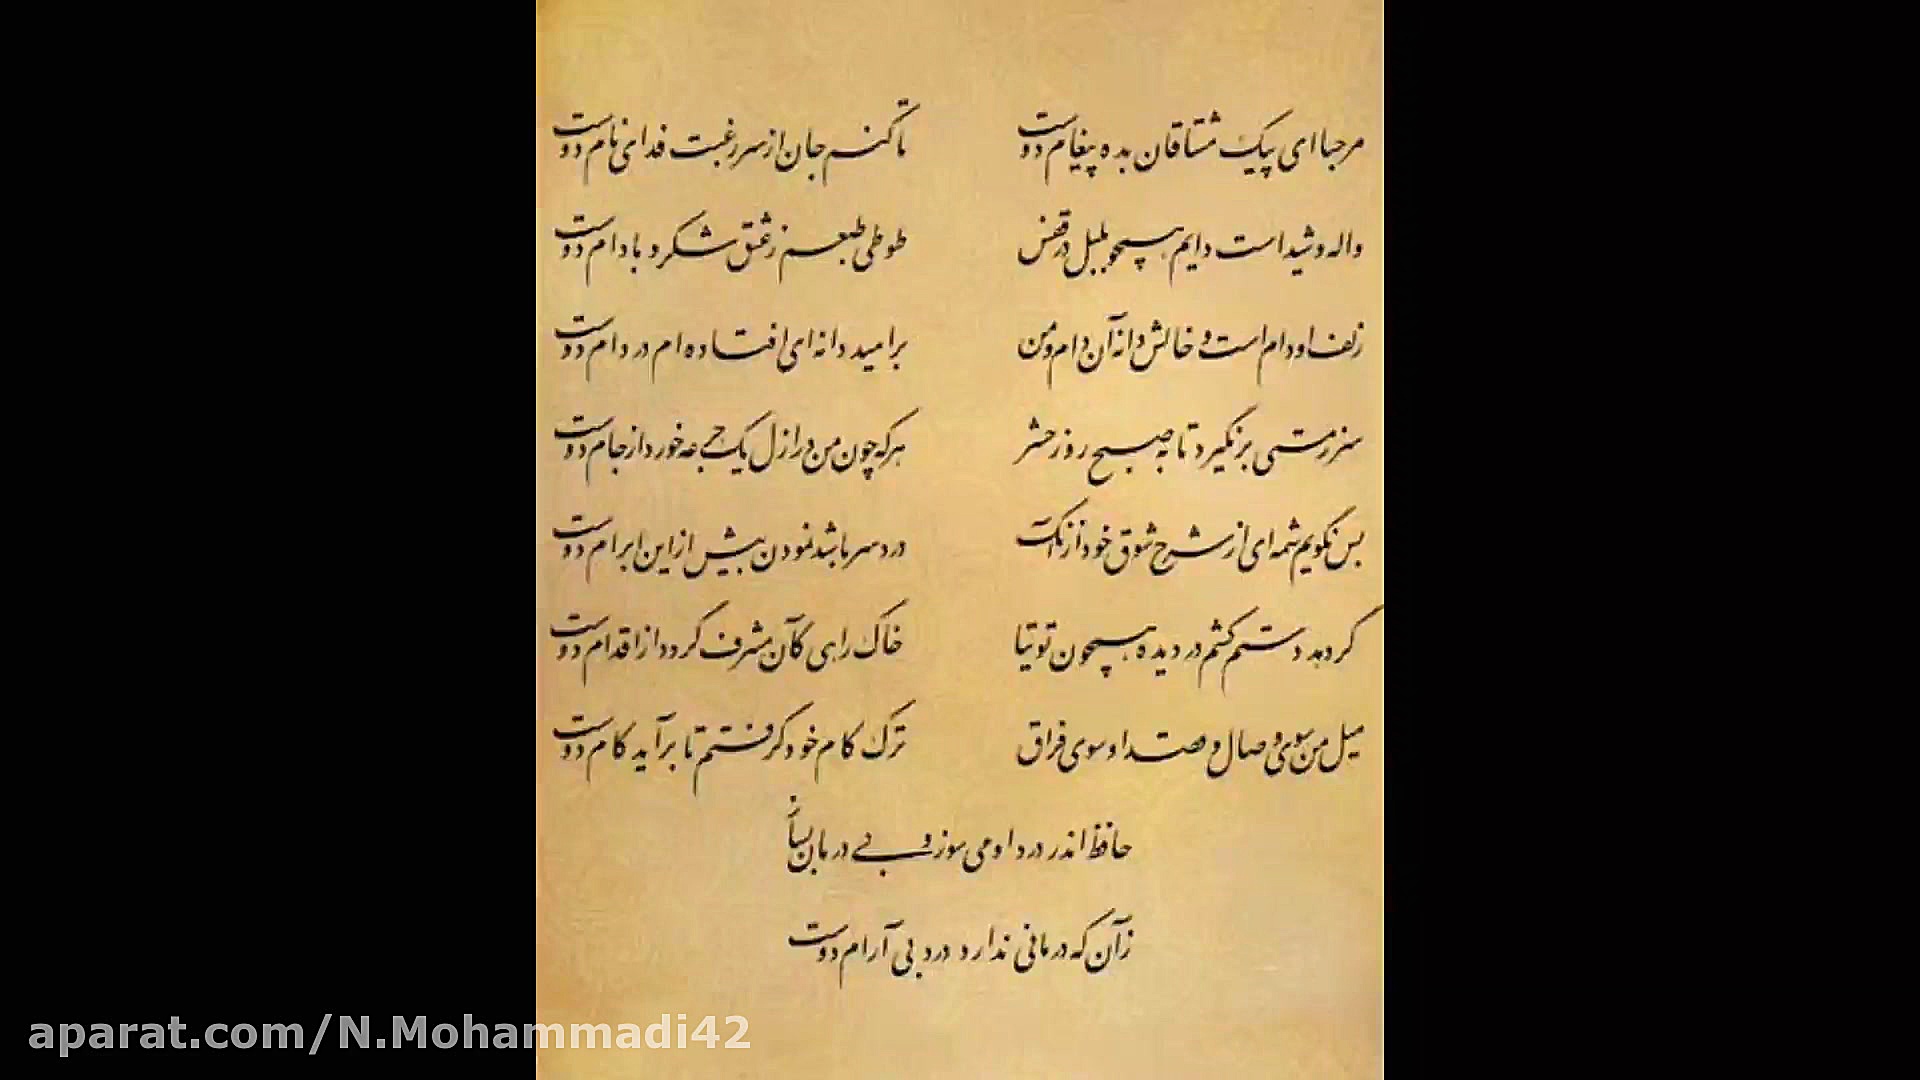 مرحبا ای پیک مشتاقان بده پیغام دوست تا کنم جان از سر رغبت فدای نام دوست
واله و شیداست دایم همچو بلبل در قفس طوطی طبعم ز عشق شکر و بادام دوست
زلف او دام است و خالش دانه آن دام و من بر امید دانه ای افتاده ام در دام دوست
سر ز مستی بر نگیرد تا به صبح روز حشر هر که چون من در ازل یک جرعه خورد از جام دوست
بس نگویم شمه ای از شرح شوق خود از آنک درد سر باشد نمودن بیش از این ابرام دوست
گر دهد دستم کشم در دیده همچون توتیا خاک راهی کآن مشرف گردد از اقدام دوست
میل من سوی وصال و قصد او سوی فراق ترک کام خود گرفتم تا برآید کام دوست
حافظ اندر درد او می سوز و بی درمان بساز
زآن که درمانی ندارد درد بی آرام دوست
aparat.com/N.Mohammadi42